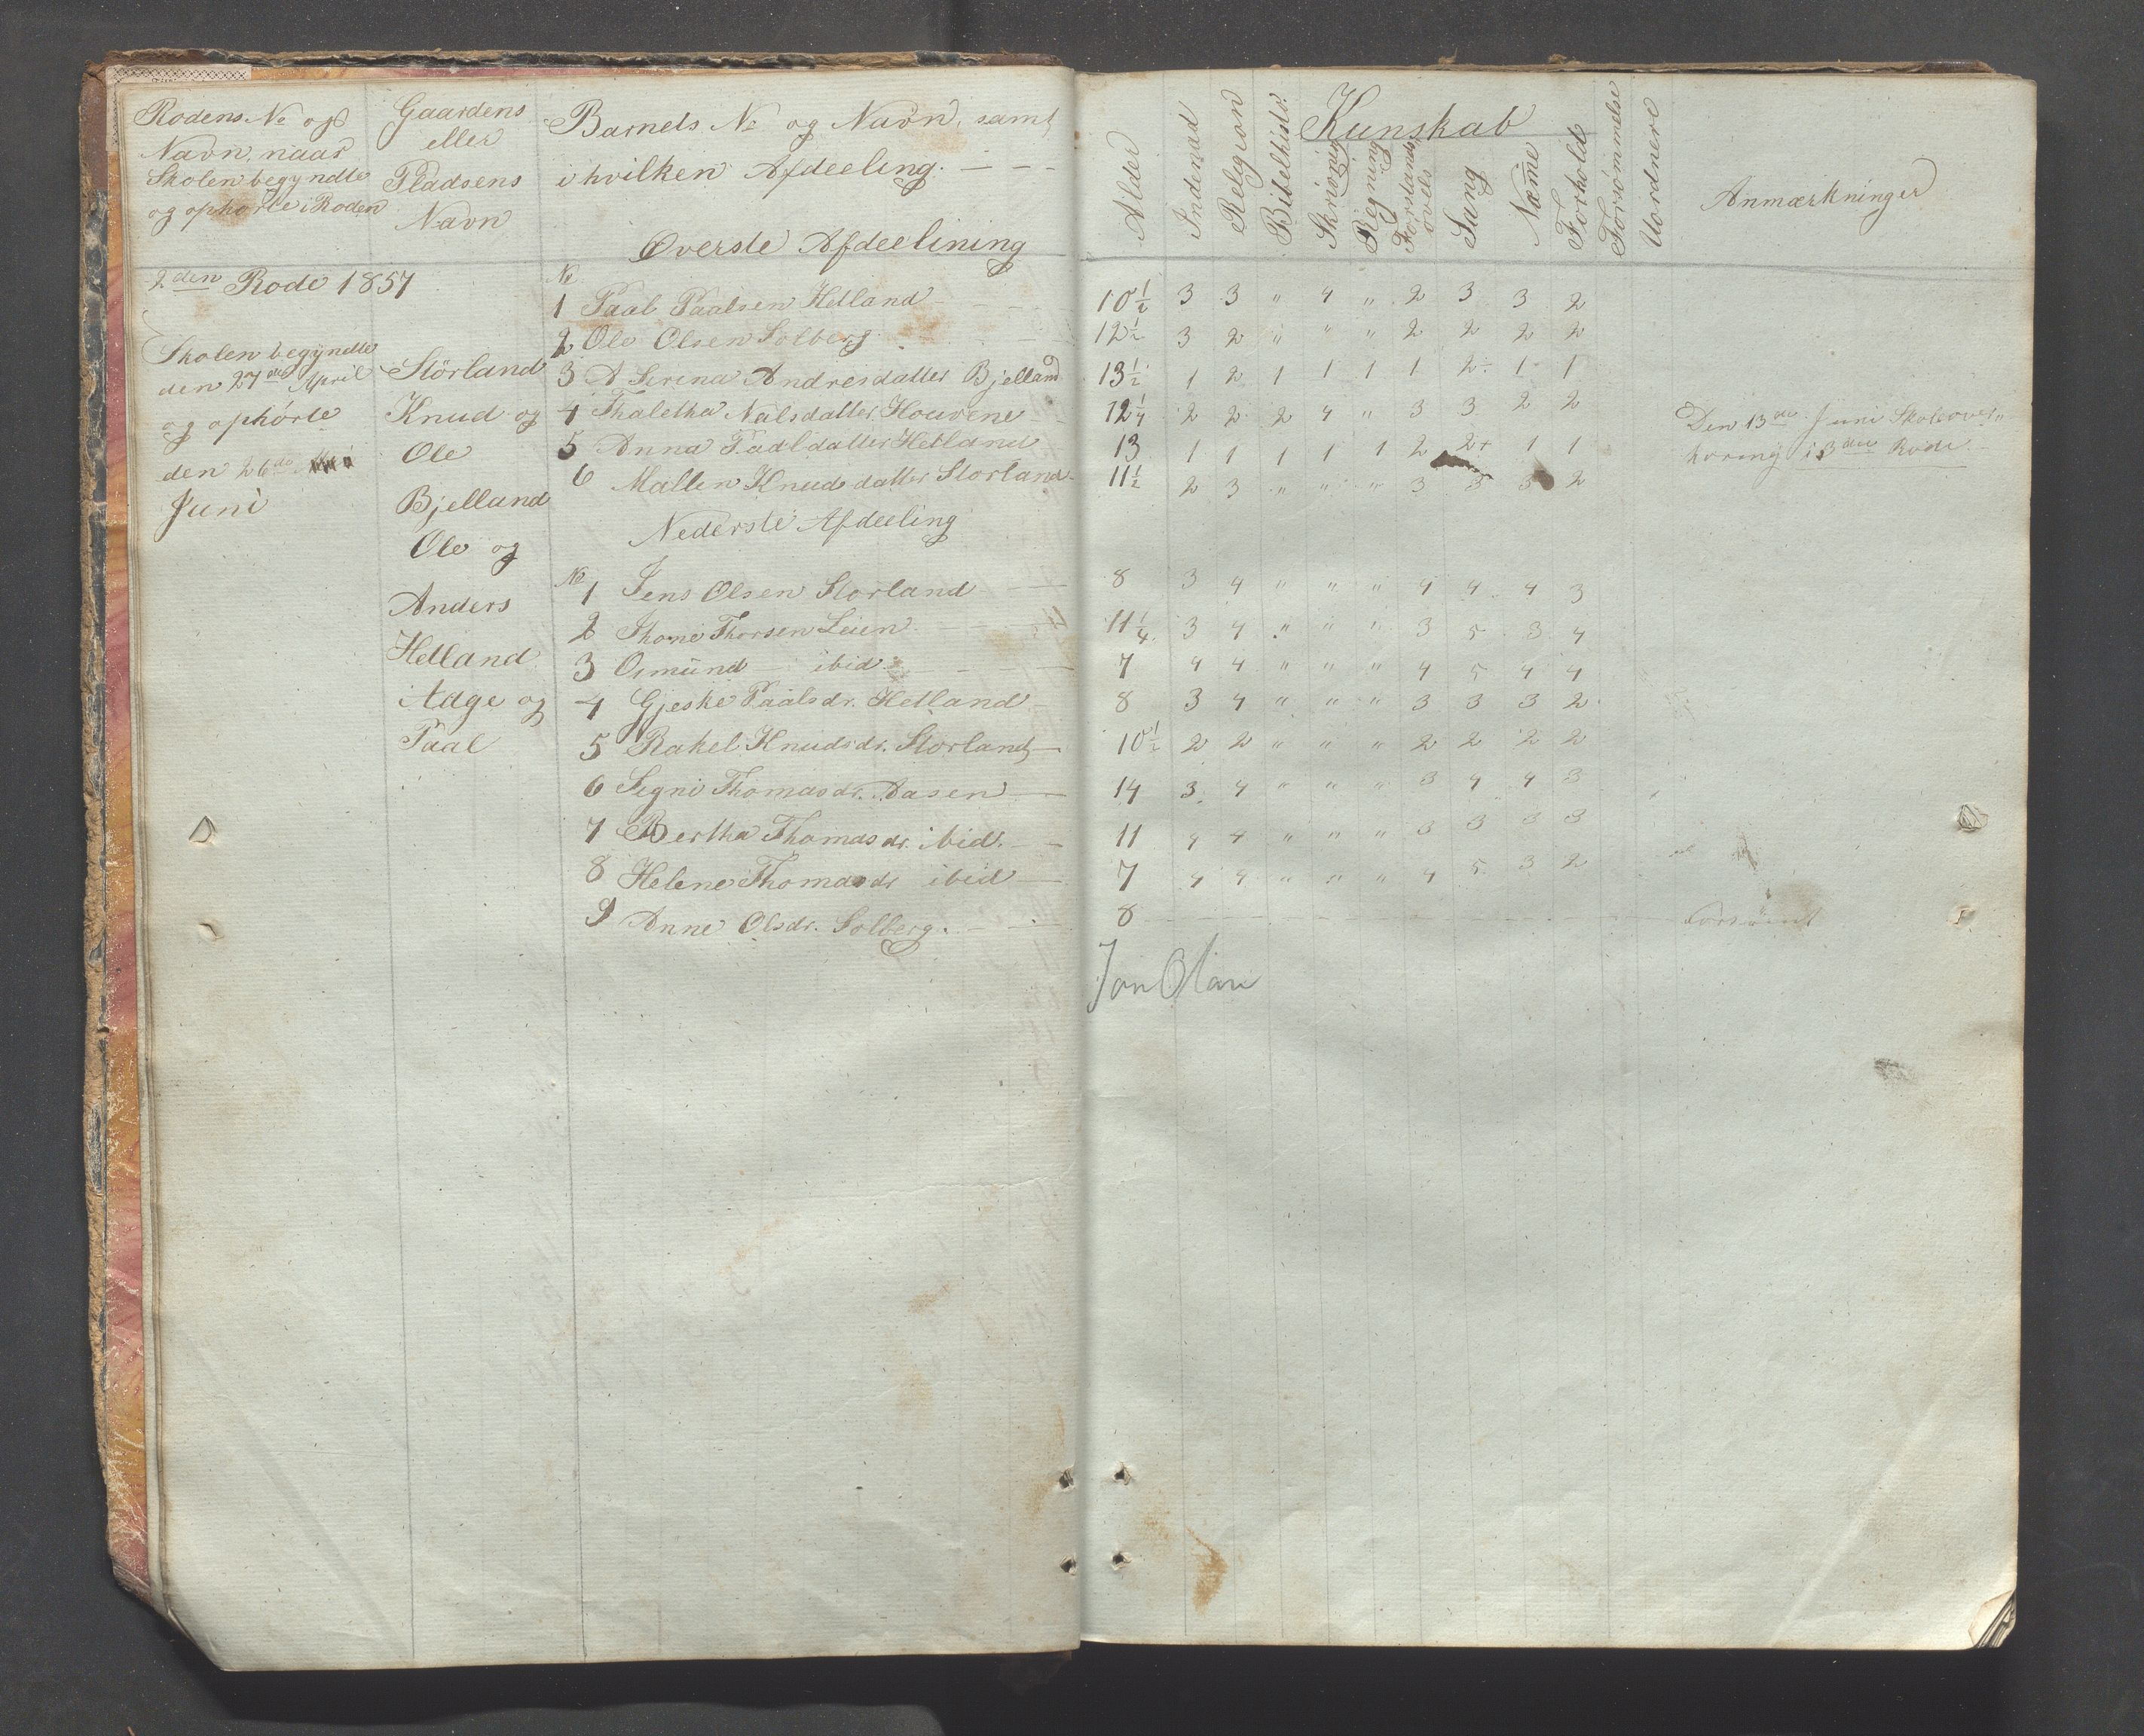 Rodens No og
Navn, naar
Skolen begyndte
og ophørte i Roden
Gaardens
eller
Pladsens
Navn
Barnets No og Navn, samt
i hvilken Afdeeling. — — —
Øverste Afdeelining
Alder
Indenad
Religion
Bibelhistr.
Kunskab
Skrivning
Regning
Forstands
øvels
Sang
Næme
Forhold
Forsømmelse
Uordnere
Anmærkninger
2den Rode 1857
Skolen begyndte
den 27de April
og ophörte
den 26de
Juni
Störland
Knud og
Ole
Bjelland
Ole og
Anders
Helland
Adge og
Paal
No
1 Paal Paalsen Helland 10 1/2 3 3 " 4 " 2 3 3 2
2 Ole Olsen Solberg 12 1/2 3 2 " " " 2 2 2 2
3 A Serina Andresdatter Bjelland 13 1/2 1 2 1 1 1 1 2÷ 1 1
4 Thaletha Nalsdatter Houvene 12 1/4 2 2 2 4 " 3 3 2 2
5 Anna Paalsdatter Helland 13 1 1 1 1 1 2 2+ 1 1
6 Mallen Knudsdatter Storland 11 1/2 2 3 " " " 3 3 3 2
Den 13de Juni Skoleover"
høring i 3den Rode
Nederste Afdeeling
No
1 Jens Olsen Storland 8 3 4 " " " 4 4 4 3
2 Thorsen Leien 11 1/4 3 4 " " " 3 5 3 4
3 Osmund — ibid. 7 4 4 " " " 4 5 4 4
4 Gjeske Paalsdr. Helland 8 3 4 " " " 3 3 3 2
5 Rakel Knudsdr. Storland 10 1/2 2 2 " " " 2 2 2 2
6 Segni Thomasdr. Aasen 14 3 4 " " " 3 4 4 3
7 Bertha Thomasdr. ibid. 11 4 4 " " " 3 3 3 3
8 Helene Thomasdr ibid 7 4 4 " " " 4 5 3 2
9 Anne Olsdr. Solberg. 8 — Forsömt
Jon